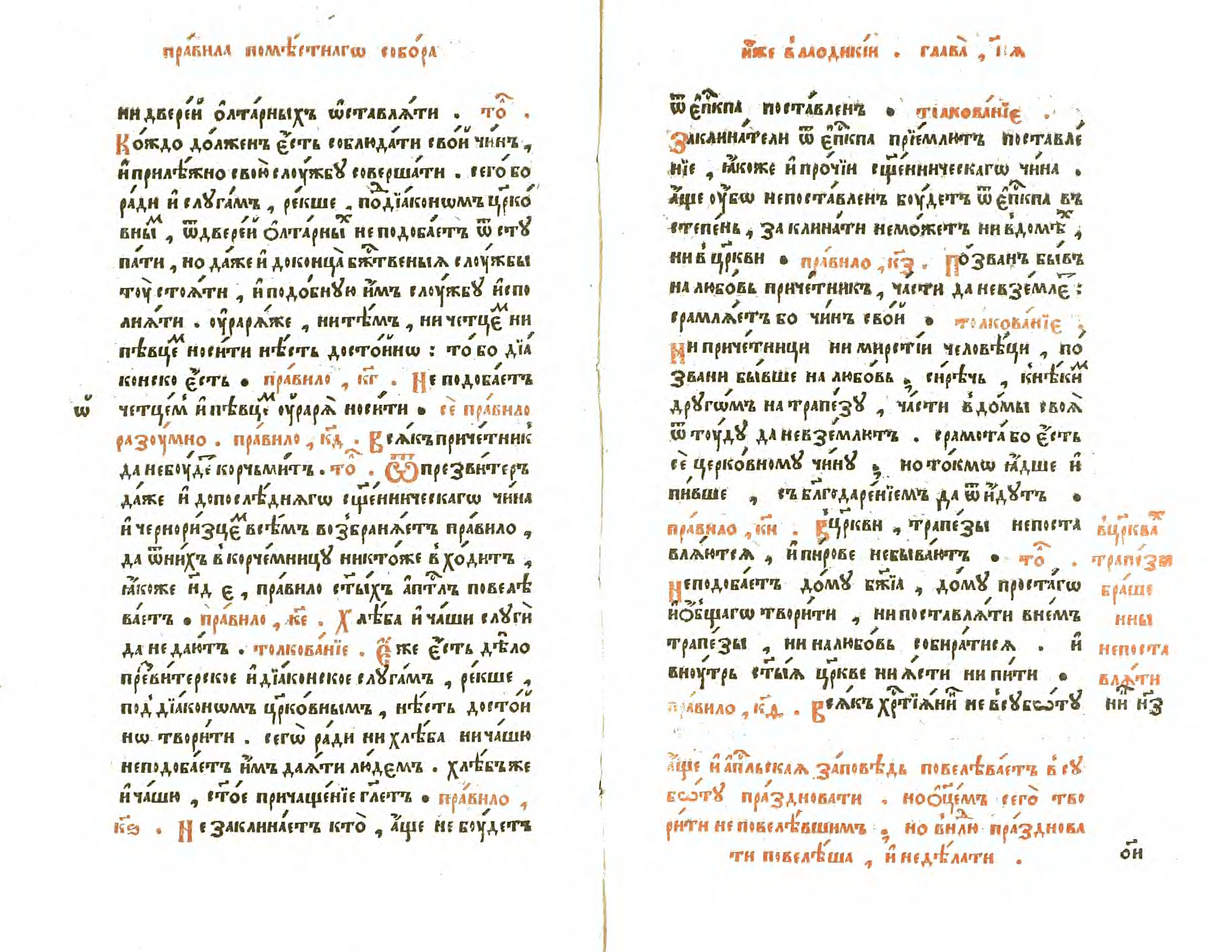 пра́вила помѣ́стнагѡ собо́ра
ни двере́й ѻ҆лта́рныхъ ѡ҆ставлѧ́ти . то̑ .
Ко́ждо до́лженъ є҆́сть соблюда́ти сво́й чи́нъ ,
и҆ прилѣ́жно свою̀ слоу́жбꙋ соверша́ти . сего́ бо
ра́ди и҆ слꙋга́мъ , ре́кше , по́дїа́кономъ црⷭ҇ко́
вныⷨ , ѿ двере́й ѻ҆лта́рныⷯ не подоба́етъ ѿстꙋ
па́ти , но да́же и҆ до конца̀ бж҃твеныѧ слоу́жбы
тоу̀ стоѧ́ти , и҆ подо́бнꙋю и҆̀мъ слоу́жбꙋ и҆спо
лнѧ́ти . оу҆рарѧ́же , ни тѣ́мъ , ни четце́ⷨ ни
пѣвце́ⷨ носи́ти нѣ́сть досто́йнѡ : то́ бо дїа́
конско є҆́сть . пра́вило , к҃г . Не подоба́етъ
ѡ҆̃
четце́мъ и҆ пѣвце́ⷨ оу҆рарѧ̀ носи́ти . сѐ пра́вило
разоу́мно . пра́вило , к҃д . Всѧ́къ приче́тник
да небоу́де корчьми́тъ . то̑ . Ѿ презви́теръ
да́же и҆ допослѣ́днѧгѡ сщ҃е́нническагѡ чи́на
и҆ черно́ризцеⷨ всѣ́мъ возбранѧ́етъ пра́вило ,
да ѿ ни́хъ в корче́мницꙋ никто́же в хо́дитъ ,
ꙗ҆́коже и҆ н҃д є҃ , пра́вило ст҃ы́хъ а҆пⷭ҇тлъ повелѣ
ва́етъ . пра́вило , к҃е . Хлѣ́ба и҆ ча́ши слꙋги̑
да не даю́тъ . толкова́нїе . Є҆́же є҆́сть дѣ́ло
пре́ви́терское и҆ дїа́конское слꙋга́мъ , ре́кше ,
под дїа́кономъ црⷭ҇ко́внымъ , нѣ́сть досто́й
нѡ твори́ти . сегѡ̀ ра́ди ни хлѣ́ба ни ча́шю
неподоба́етъ и҆̀мъ даѧ́ти лю́демъ . хлѣ́бъ же
и҆ ча́шю , ст҃о́е причаще́нїе гл҃етъ . пра́вило ,
к҃ѕ . Не заклина́етъ кто̀ , а҆́ще не боу́детъ
и҆́же в лаодики́и . глава̀ , і҃ ꙗ
ѿ є҆пⷭ҇кпа поста́вленъ . толкова́нїе .
Заклина́тели ѿ є҆пⷭ҇кпа прїе́млютъ поставле́
нїе , ꙗ҆́коже и҆ про́чїи сщ҃е́нническагѡ чи́на .
а҆́ще оу҆́бо непоста́вленъ боу́детъ ѿ є҆пⷭ҇кпа въ
степе́нь , заклина́ти неможетъ ни вдомѣ́ⷯ ,
ни в цр҃кви . пра́вило , к҃з . По́званъ бы́въ
на любо́вь приче́тникъ , ча́сти да невзе́млеⷮ :
срамлѧ́етъ бо чи́нъ сво́й . толкова́нїе .
Ни приче́тници ни мирстїи человѣ́цы , по́
звани бы́вше на любо́вь , си́рѣчь , к нѣ́киⷨ
дрꙋго́мъ на трапе́зꙋ , ча́сти в до́мы своѧ̀
ѿтоу́дꙋ да невзе́млютъ . срамота́ бо є҆́сть
сѐ церко́вномꙋ чи́нꙋ , но то́кмѡ ꙗ҆́дше и҆
пи́вше , съ бл҃годаре́нїемъ да ѿи́дꙋтъ .
пра́вило , к҃и . В цр҃кви , трапе́зы непоста
влѧ́ютсѧ , и҆ пи́рове небыва́ютъ . то̑ .
Неподоба́етъ до́мꙋ бж҃їа , до́мꙋ проста́гѡ
и҆ ѻ҆́бщагѡ твори́ти , ни поставлѧ́ти в не́мъ
трапе́зы , ни на любо́вь собира́тисѧ . и҆
внꙋ́трь ст҃ы́ѧ цр҃кве ни ꙗ҆́сти ни пи́ти .
пра́вило , к҃д . Всѧ́къ хрⷭ҇тїѧ́нй не в сꙋбѡ́тꙋ
в цр҃кваⷯ
трапе́зы
бра́ше
нны
непоста
влѧ́ти
ни и҆з
а҆́ще и҆ а҆пⷭ҇льская за́повѣдь повелѣва́етъ в сꙋ
бѡ́тꙋ пра́здновати . но ѻ҆ц҃е́мъ сего̀ тво
ри́ти не повелѣ́вшимъ , но в нⷣлю пра́зднова
ти повелѣ́ша , и҆ недѣ́лати .
ѻ҆́н